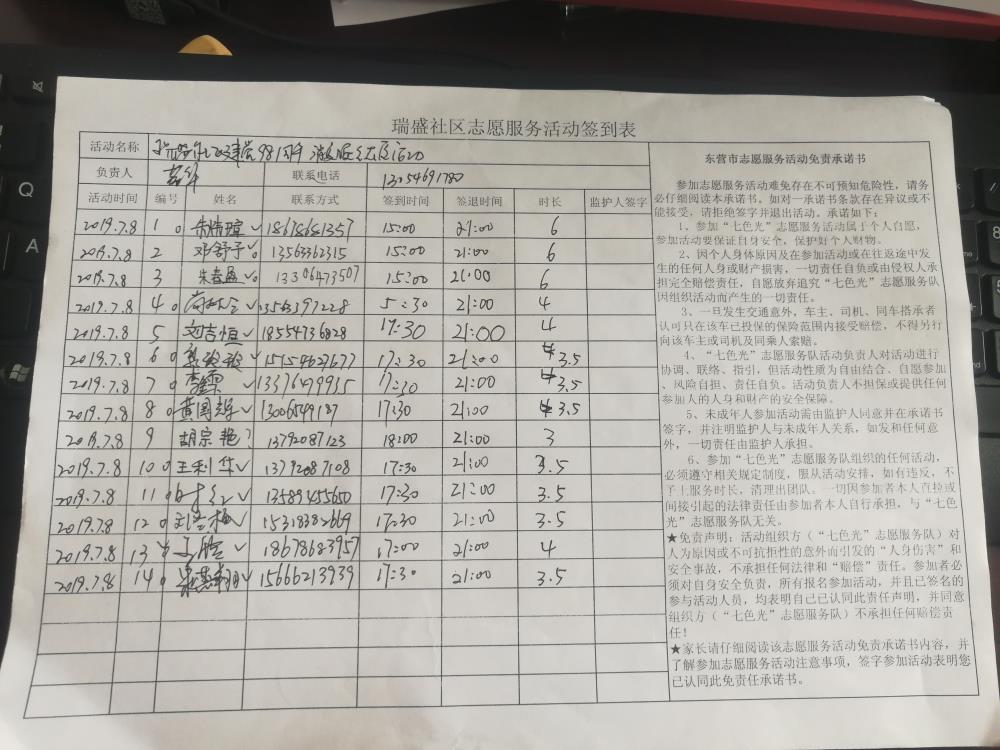 瑞盛社区志愿服务活动签到表
活动名称
负责人 联系电话 13054691780
活动时间 编号 姓名 联系方式 签到时间 签退时间 时长 监护人签字
2019.7.8 1 18678681357 15:00 21:00 6
2019.7.8 2 邓舒予 13563362315 15:00 21:00 6
2019.7.8 3 朱春盈 13306473507 15:00 21:00 6
2019.7.8 4 13563397228 5:30 21:00 4
2019.7.8 5 刘吉恒 18554736828 17:30 21:00 4
2019.7.8 6 15154627677 17:30 21:00 3.5
2019.7.8 7 13376479935 17:30 21:00 3.5
2019.7.8 8 13006549187 17:30 21:00 3.5
2019.7.8 9 胡宗艳 13792087123 18:00 21:00 3
2019.7.8 10 王利华 13792087108 17:30 21:00 3.5
2019.7.8 11 13589455650 17:30 21:00 3.5
2019.7.8 12 17:30 21:00 3.5
2019.7.8 13 18678683957 17:00 21:00 4
2019.7.8 14 15666213939 17:30 21:00 3.5
东营市志愿服务活动免责承诺书
参加志愿服务活动难免存在不可预知危险性，请务
必仔细阅读本承诺书。如对一承诺书条款存在异议或不
能接受，请拒绝签字并退出活动。承诺如下：
1、参加“七色光”志愿服务活动属于个人自愿，
参加活动要保证自身安全，保护好个人财物。
2、因个人身体原因及在参加活动或在往返途中发
生的任何人身或财产损害，一切责任自负或由侵权人承
担完全赔偿责任，自愿放弃追究“七色光”志愿服务队
因组织活动而产生的一切责任。
3、一旦发生交通意外，车主、司机、同车搭承者
认可只在该车已投保的保险范围内接受赔偿，不得另行
向该车主或司机及同乘人索赔。
4、“七色光”志愿服务队活动负责人对活动进行
协调、联络、指引，但活动性质为自由结合、自愿参加
、风险自担、责任自负。活动负责人不担保或提供任何
参加人的人身和财产的安全保障。
5、未成年人参加活动需由监护人同意并在承诺书
签字，并注明监护人与未成年人关系，如发和任何意
外，一切责任由监护人承担。
6、参加“七色光”志愿服务队组织的任何活动，
必须遵守相关规定制度，服从活动安排，如有违反，不
予上服务时长，清理出团队。一切因参加者本人直接或
间接引起的法律责任由参加者本人自行承担，与“七色
光”志愿服务队无关。
★免责声明：活动组织方（“七色光”志愿服务队）对
人为原因或不可抗拒性的意外而引发的“人身伤害”和
安全事故，不承担任何法律和“赔偿”责任。参加者必
须对自身安全负责，所有报名参加活动，并且已签名的
参与活动人员，均表明自己已认同此责任声明，并同意
组织方（“七色光”志愿服务队）不承担任何赔偿责
任！
★家长请仔细阅读该志愿服务活动免责承诺书内容，并
了解参加志愿服务活动注意事项，签字参加活动表明您
已认同此免责任承诺书。